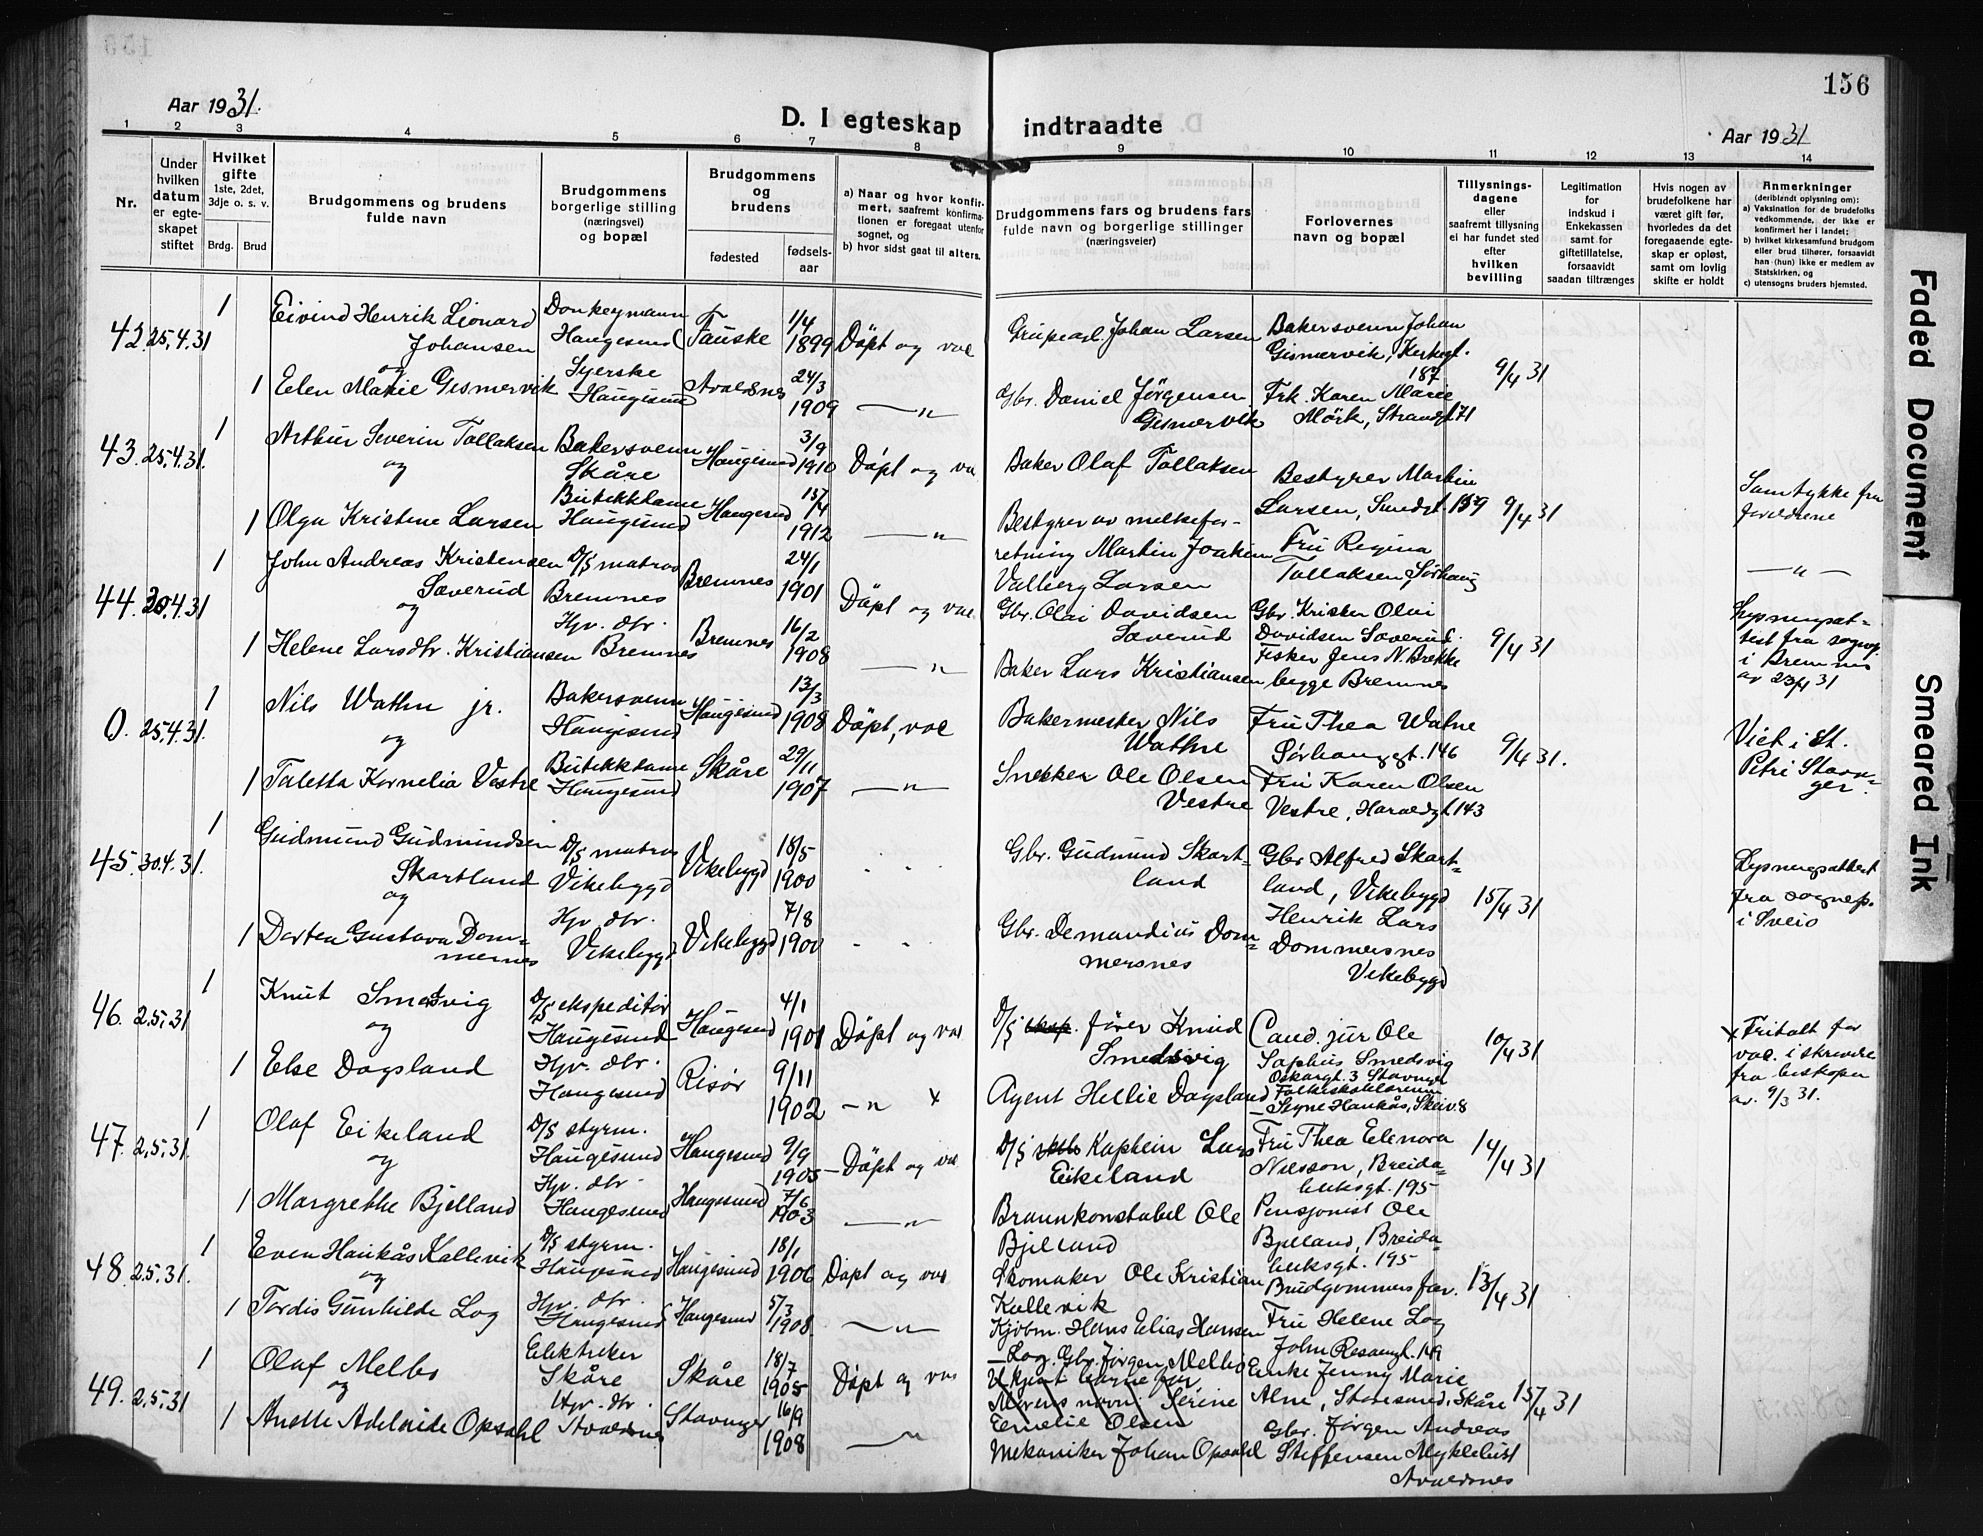 156
Aar 1931.
D. I egteskap indtraadte
Aar 1931
1 2 3 4 5 6 7 8 9 10 11 12 13 14
Nr.
Under hvilken datum er egteskapet stiftet
Hvilket gifte 1ste, 2det, 3dje o. s. v.
Brdg. Brud
Brudgommens og brudens fulde navn
Brudgommens borgerlige stilling (næringsvei) og bopæl
Brudgommens og brudens
fødested
fødsels-aar
a) Naar og hvor konfirmert, saafremt konfirmationen er foregaat utenfor sognet, og
b) hvor sidst gaat til alters.
Brudgommens fars og brudens fars fulde navn og borgerlige stillinger (næringsveier)
Forlovernes navn og bopæl
Tillysningsdagene eller saafremt tillysning ei har fundet sted efter hvilken bevilling
Legitimation for indskud i Enkekassen samt for giftetillatelse, forsaavidt saadan tiltrænges
Hvis nogen av brudefolkene har været gift før, hvorledes da det foregaaende egteskap er opløst, samt om lovlig skifte er holdt
Anmerkninger (deriblandt oplysning om):
a) Vaksination for de brudefolks vedkommende, der ikke er konfirmert her i landet;
b) hvilket kirkesamfund brudgom eller brud tilhører, forsaavidt han (hun) ikke er medlem av Statskirken, og
c) utensogns bruders hjemsted.
42. 25.4.31 1 Eivind Henrik Lionard Johansen Donkeymann Haugesund Fauske 1/4 1899 Döpt og vac Johan Larsen Bakersvenn Johan Gismervik, 187 9/4 31
og
1 Elen Marie Gismervik Syerske Haugesund Avaldsnes 24/3 1909 —"— Gbr. Daniel Jörgensen Gismervik Frk. Karen Marie Mörk, Strandgt. 71
43. 25.4.31. 1 Arthur Severin Tollaksen Bakersvenn Skåre Haugesund 3/9 1910 Döpt og va Baker Olaf Tollaksen Bestyrer Martin Larsen, Sundgt. 159 9/4 31 Samtykke fra foreldrene
og
1 Olga Kristine Larsen Butikkdame Haugesund Haugesund 15/4 1912 —"— Bestyrer av melkeforretning Martin Joakim Valberg Larsen Fru Regina Tollaksen, Sørhaug —"—
44. 30.4.31 1 John Andreas Kristensen Sæverud D/s matros Bremnes Bremnes 24/1 1901 Döpt og vac Gbr. Olai Davidsen Sæverud Gbr. Kristen Olai Davidsen Sæverud 9/4 31 Lysningsattest fra sognep. i Bremnes av 23/4 31
og
1 Helene Larsdtr. Kristiansen Hjv. dtr. Bremnes Bremnes 16/2 1908 —"— Baker Lars Kristiansen Fisker Jens N. Brekke begge Bremnes
0. 25.4.31. 1 Nils Wathne jr. Bakersvenn Haugesund Haugesund 13/3 1908 Döpt, vac Bakermester Nils Wathne Fru Thea Watne Sørhauggt. 146 9/4 31. Viet i St. Petri Stavanger.
og
1 Taletta Kornelia Vestre Butikkdame Haugesund Skåre 29/11 1907 —"— Snekker Ole Olsen Vestre Fru Karen Olsen Vestre, Haraldsgt. 143
45. 30.4.31. 1 Gudmund Gudmundsen Skartland D/s matros Vikebygd Vikebygd 18/5 1900 Gbr. Gudmund Skartland Gbr Alfred Skartland, Vikebygd 15/4 31 Lysningsattest fra sognep. i Sveio
og
1 Dortea Gustava Dommernes Hjv. dtr. Vikebygd Vikebygd 7/8 1900 Gbr. Demandius Dommersnes Henrik Lars Dommersnes Vikebygd
46. 2.5.31 1 Knut Smedsvig D/s ekspeditör Haugesund Haugesund 4/1 1901 Döpt og vac D/s förer Knud Smedsvig Cand. jur Ole Sophus Smedsvig Oskarsgt. 3 Stavanger 10/4 31 x Fritatt for vac. i skrivelse fra biskopen av 9/3 31.
og
1 Else Dagsland Hjv. dtr. Haugesund Risør 9/11 1902 —"— x Agent Hellie Dagsland Folkeskolelærerinne Signe Haukås, Skeiv. 8
47. 2.5.31. 1 Olaf Eikeland D/s styrm. Haugesund Haugesund 9/9 1905 Döpt og vac D/s Kaptein Lars Eikeland Fru Thea Elenora Nilsson, Breidabliksgt. 195 14/4 31
og
1 Margrethe Bjelland Hjv. dtr. Haugesund Haugesund 7/6 1903 —"— Brannkonstabel Ole Bjelland Pensjonist Ole Bjelland, Breidabliksgt. 195
48. 2.5.31. 1 Even Haukås Kallevik D/s styrm. Haugesund Haugesund 18/1 1906 Döpt og vac Skomaker Ole Kristian Kallevik Brudgommens far. 13/4 31
og
1 Tordis Gunhilde Log Hjv. dtr. Haugesund Haugesund 5/3 1908 —"— Kjöbm. Hans Elias Hansen Log. Fru Helene Log
49. 2.5.31 1 Olaf Melbo Elektriker Skåre Skåre 18/7 1905 Döpt og vac Gbr. Jørgen Melbo Ukjent barnefar Morens navn Serine Emelie Olsen Enke Jenny Marie Skåre 15/4 31
og
1 Anette Adelaide Opsahl Hjv. dtr. Avaldsnes Stavanger 16/9 1908 —"— Mekaniker Johan Opsahl Gbr. Jørgen Andreas Steffensen Myklebust Avaldsnes
Faded Document
Smeared Ink